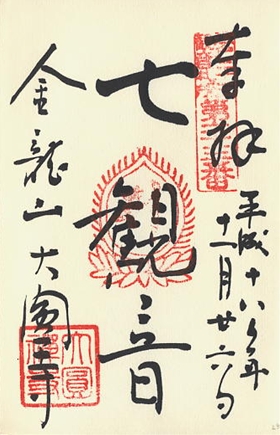 奉拝
平成十八年
十一月廿六日
七観音
金龍山大圓寺